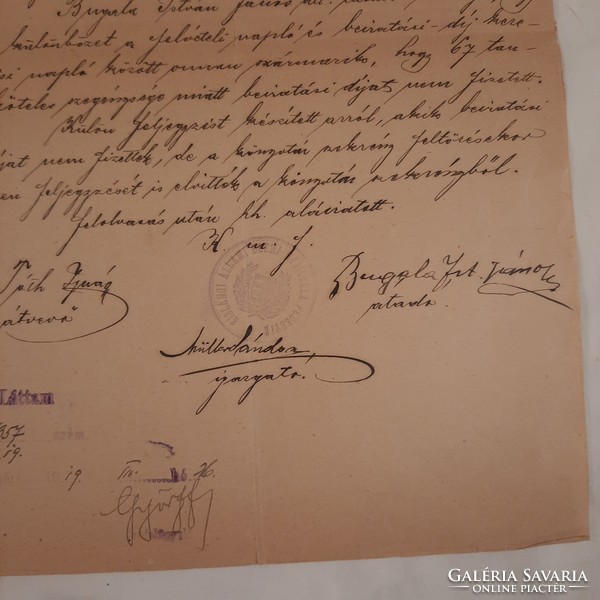 Bugala István János
különbözet a felvételi napló és beiratási-díj keze-
si napló között onnan származik, hogy 67 tan-
köteles szegénysége miatt beiratási díjat nem fizetett.
Külön feljegyzést készített arról, akik beiratási
íjat nem fizettek, de a könyvtár szekrény feltörésekor
feljegyzését is elvitték a könyvtár szekrényből.
Felolvasás után hh. aláiratott.
K. m. f.
Tóth
átvevő
Bugala Ist. János
átadó
Müller Sándor
igazgató.
Láttam
357
19.
szám.
19. III. hó 26.
György
GALÉRIA SAVARIA
ONLINE PIACTÉR